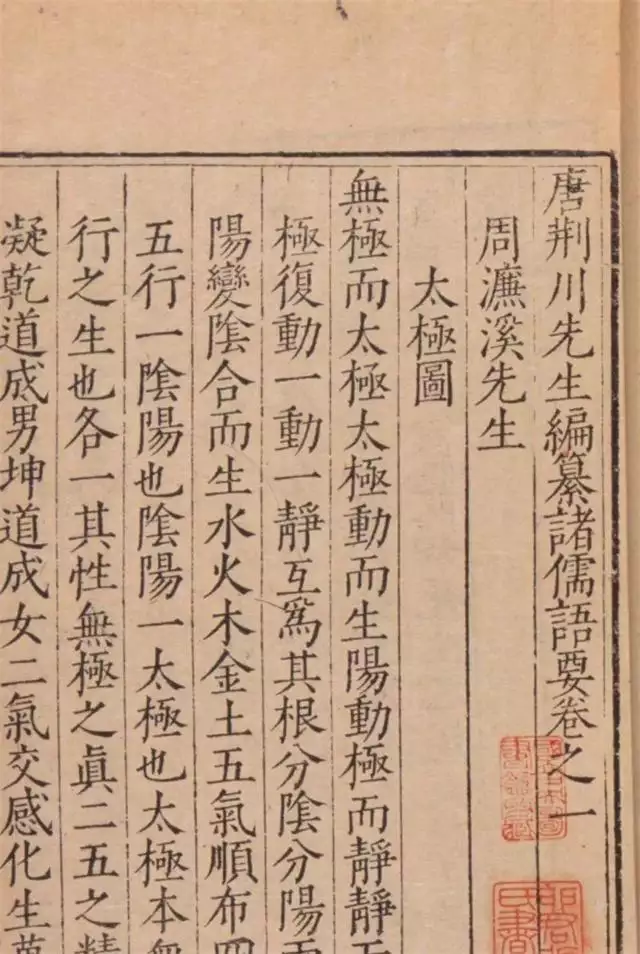 唐荆川先生編纂諸儒語要卷之一
周濂溪先生
太極圖
無極而太極太極動而生陽動極而靜靜
極復動一動一靜互爲其根分陰分陽
陽變陰合而生水火木金土五氣順布
五行一陰陽也陰陽一太極也太極本
行之生也各一其性無極之眞二五之精
凝乾道成男坤道成女二氣交感化生